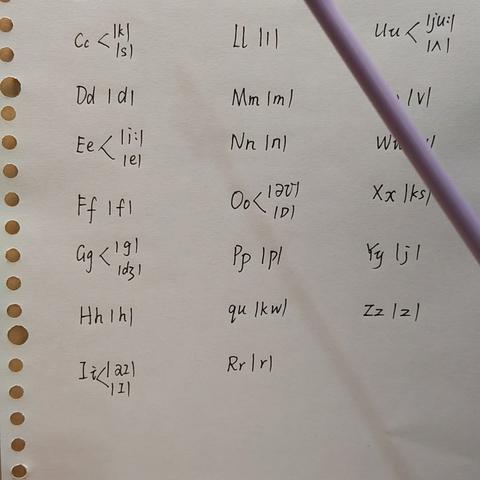 Cc < |k|
|s|
Dd |d|
Ee < |i:|
|e|
Ff |f|
Gg < |g|
|dʒ|
Hh |h|
Ii < |aɪ|
|ɪ|
Ll |l|
Mm |m|
Nn |n|
Oo < |əʊ|
|ɒ|
Pp |p|
qu |kw|
Rr |r|
Uu < |ju:|
|ʌ|
|v|
Xx |ks|
Yy |j|
Zz |z|